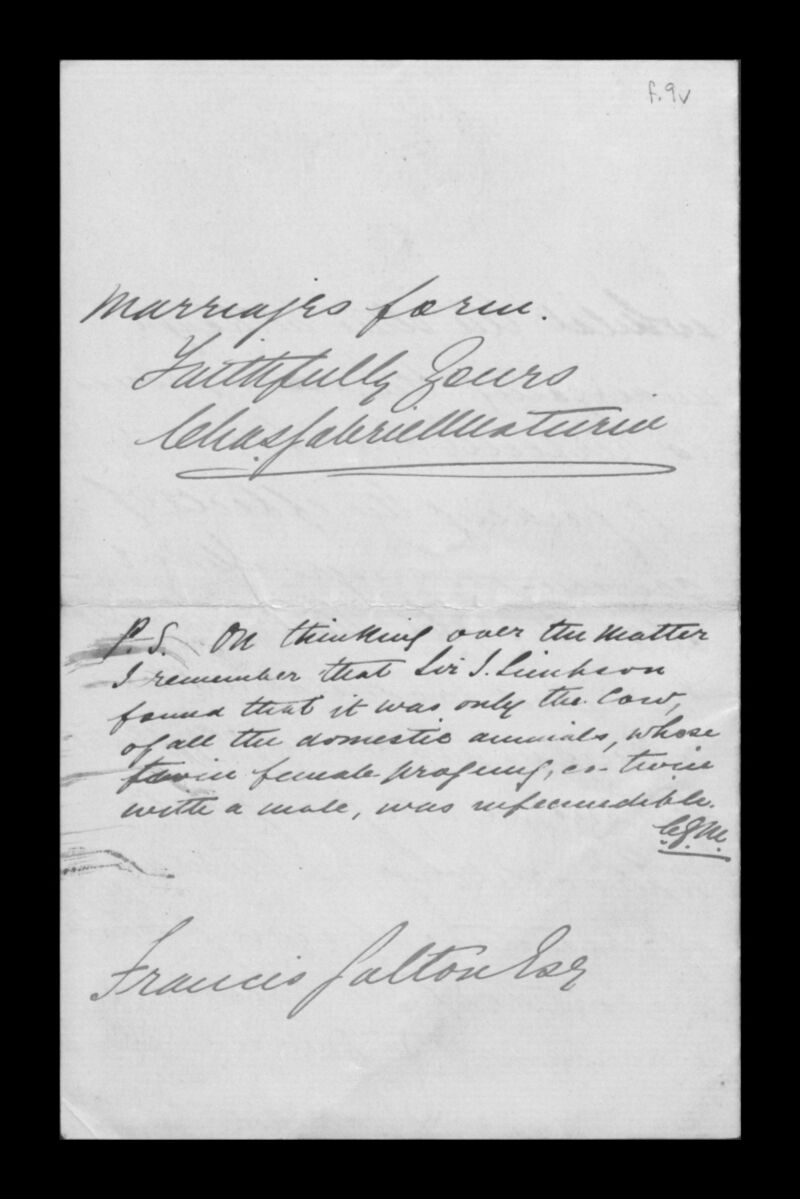 f.9v
Marriages form.
Faithfully Yours
Chas Gabriel Maturin
P.S. On thinking over the matter
I remember that Sir J. Simpson
found that it was only the cow,
of all the domestic animals, whose
twin female progeny, co-twin
with a male, was infecundible.
C.G.M.
Francis Galton Esq